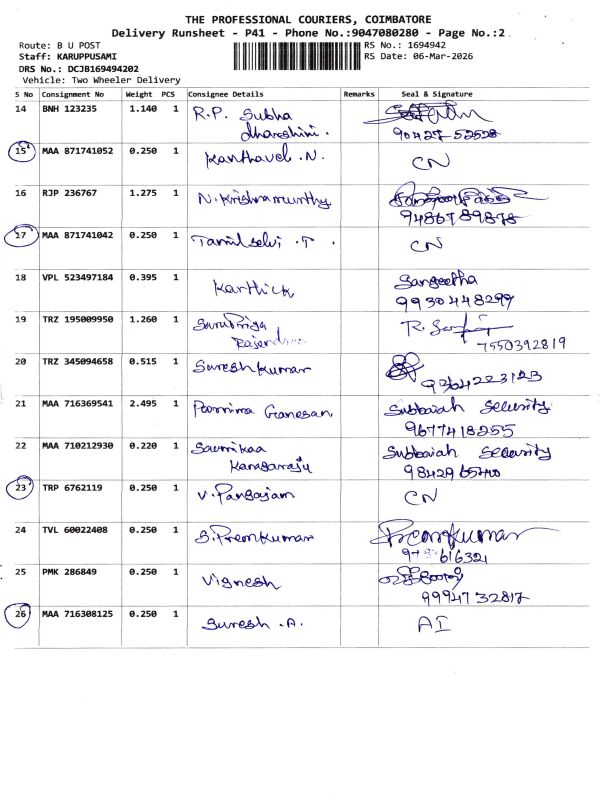 THE PROFESSIONAL COURIERS, COIMBATORE
Delivery Runsheet - P41 - Phone No.:9047080280 - Page No.:2
Route: B U POST
Staff: KARUPPUSAMI
DRS No.: DCJB169494202
Vehicle: Two Wheeler Delivery
RS No.: 1694942
RS Date: 06-Mar-2026
S No Consignment No Weight PCS Consignee Details Remarks Seal & Signature
14 BNH 123235 1.140 1 R.P. Subha
dharshini. 90427 52528
15 MAA 871741052 0.250 1 Kanthavel .N. CN
16 RJP 236767 1.275 1 N.Krishnamurthy
9486789878
17 MAA 871741042 0.250 1 Tamilselvi .T. CN
18 VPL 523497184 0.395 1 Karthick Sangeetha
9930448299
19 TRZ 195009950 1.260 1 Saru Priya R.
Rajendran 7550392819
20 TRZ 345094658 0.515 1 Sureshkumar
9364223123
21 MAA 716369541 2.495 1 Poornima Ganesan Subbaiah Security
9677418255
22 MAA 710212930 0.220 1 Sounikaa Subbaiah Security
Kanagaraju 9842965400
23 TRP 6762119 0.250 1 V.Pangajam CN
24 TVL 60022408 0.250 1 S.Premkumar Premkumar
616321
25 PMK 286849 0.250 1 Vignesh
99947 32817
26 MAA 716308125 0.250 1 Suresh .A. AI